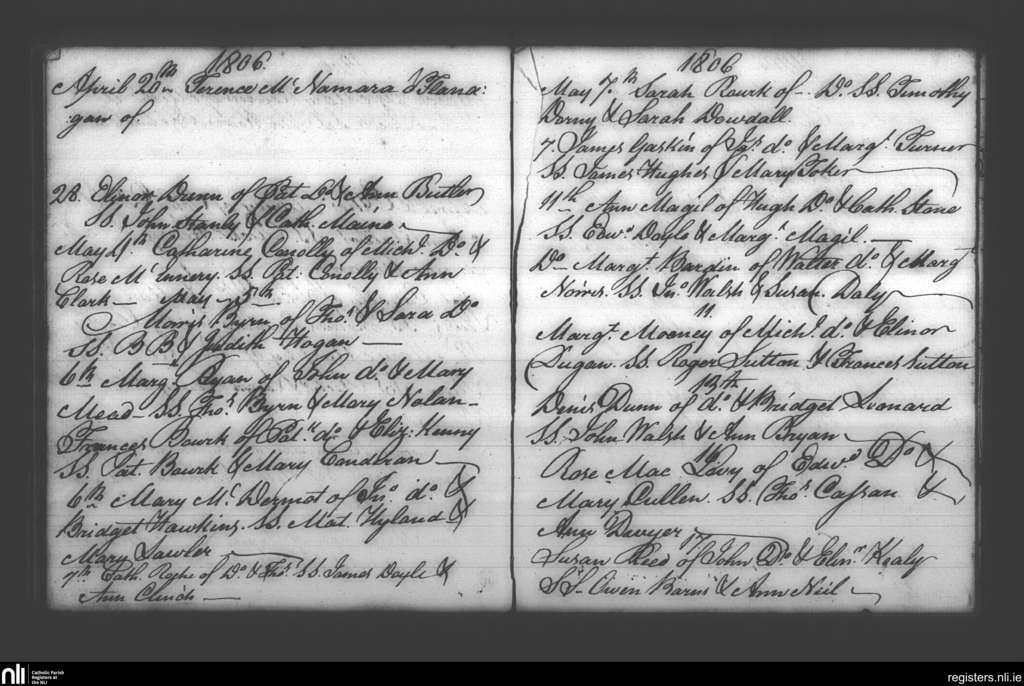 1806.
April 20th Terence Mc Namara & Flana:
:gan of.
28. Elinor Dunn of Pat Do. & Ann Butler
SS. John Stanly & Cath. Maine.
May 1th Catharine Conolly of Michl. Do. &
Rose Mc Ennery. SS. Pat: Conolly & Ann
Clark — May 5th
Morris Byrn of Thos. & Sara Do
SS. B B & Judith Hogan —
6th Margt. Ryan of John do. & Mary
Mead — SS. Thos. Byrn & Mary Nolan —
Frances Bourk of Patk. do. & Eliz: Kenny
SS. Pat. Bourk & Mary Conderan —
6th Mary Mc. Dermot of Jno. do. &
Bridget Hawkins. SS. Mat. Hyland &
Mary Lawler
7th Cath. Roche of Do & Thos. SS. James Doyle &
Ann Clinch —
1806
May 7.th Sarah Rourk of — Do. SS. Timothy
Dorny & Sarah Dowdall.
7. James Gaskin of Jas. do. & Margt. Turner
SS. James Hughes & Mary Toker
11th Ann Magil of Hugh Do. & Cath. Stone
SS. Edwd. Doyle & Margt. Magil. —
Do — Margt. Bardin of Walter do. & Margt
Norris. SS. Jno. Walsh & Susan. Daly
11.
Margt. Mooney of Michl. do. & Elinor
Dugan. SS. Roger Sutton & Frances Sutton
13th
Denis Dunn of do. & Bridget Leonard
SS. John Walsh & Ann Bryan
16
Rose Mac Levy of Edwd. Do &
Mary Cullen. SS. Thos. Cassan &
Ann Dwyer
17
Susan Reed of John Do. & Elinr. Kealy
SS. Owen Barns & Ann Neil —
nli
Catholic Parish
Registers at
the NLI
registers.nli.ie